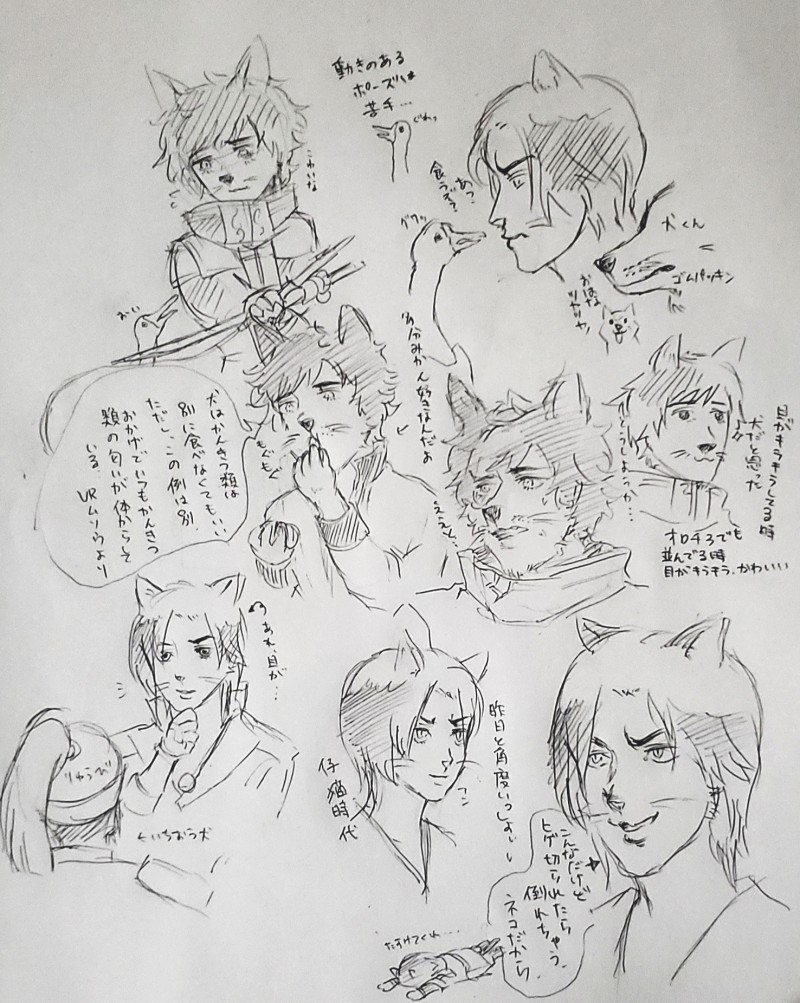 動きのある
ポーズは
苦手…
こわいな
おい
あっ、
食うぞ?
ググッ
犬くん
ゴムパッキン
おはな
ツヤツヤ
多分みかん好きなんだよ
犬はかんきつ類は
別に食べなくてもいい
ただし、この例は別。
おかげでいつもかんきつ
類の匂いが体からして
いる。VRムソウより
もぐもぐ
ええと…
どうしようか…
目がキラキラしてる時
犬だと思った
オロチ3でも
並んでる時
目がキラキラ、かわいい
あれ、目が…
りゅうび
←いちおう犬
仔猫時代
昨日と角度いっしょ
フン
こんなだけど
ヒゲ切られたら
倒れちゃう。
ネコだから
たすけてくれ…